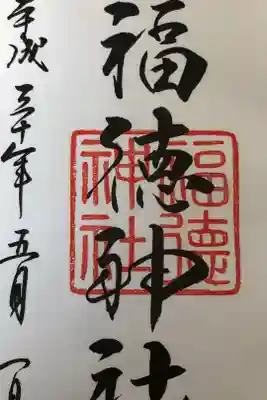 福徳神社
福徳
神社
平成三十年五月一日